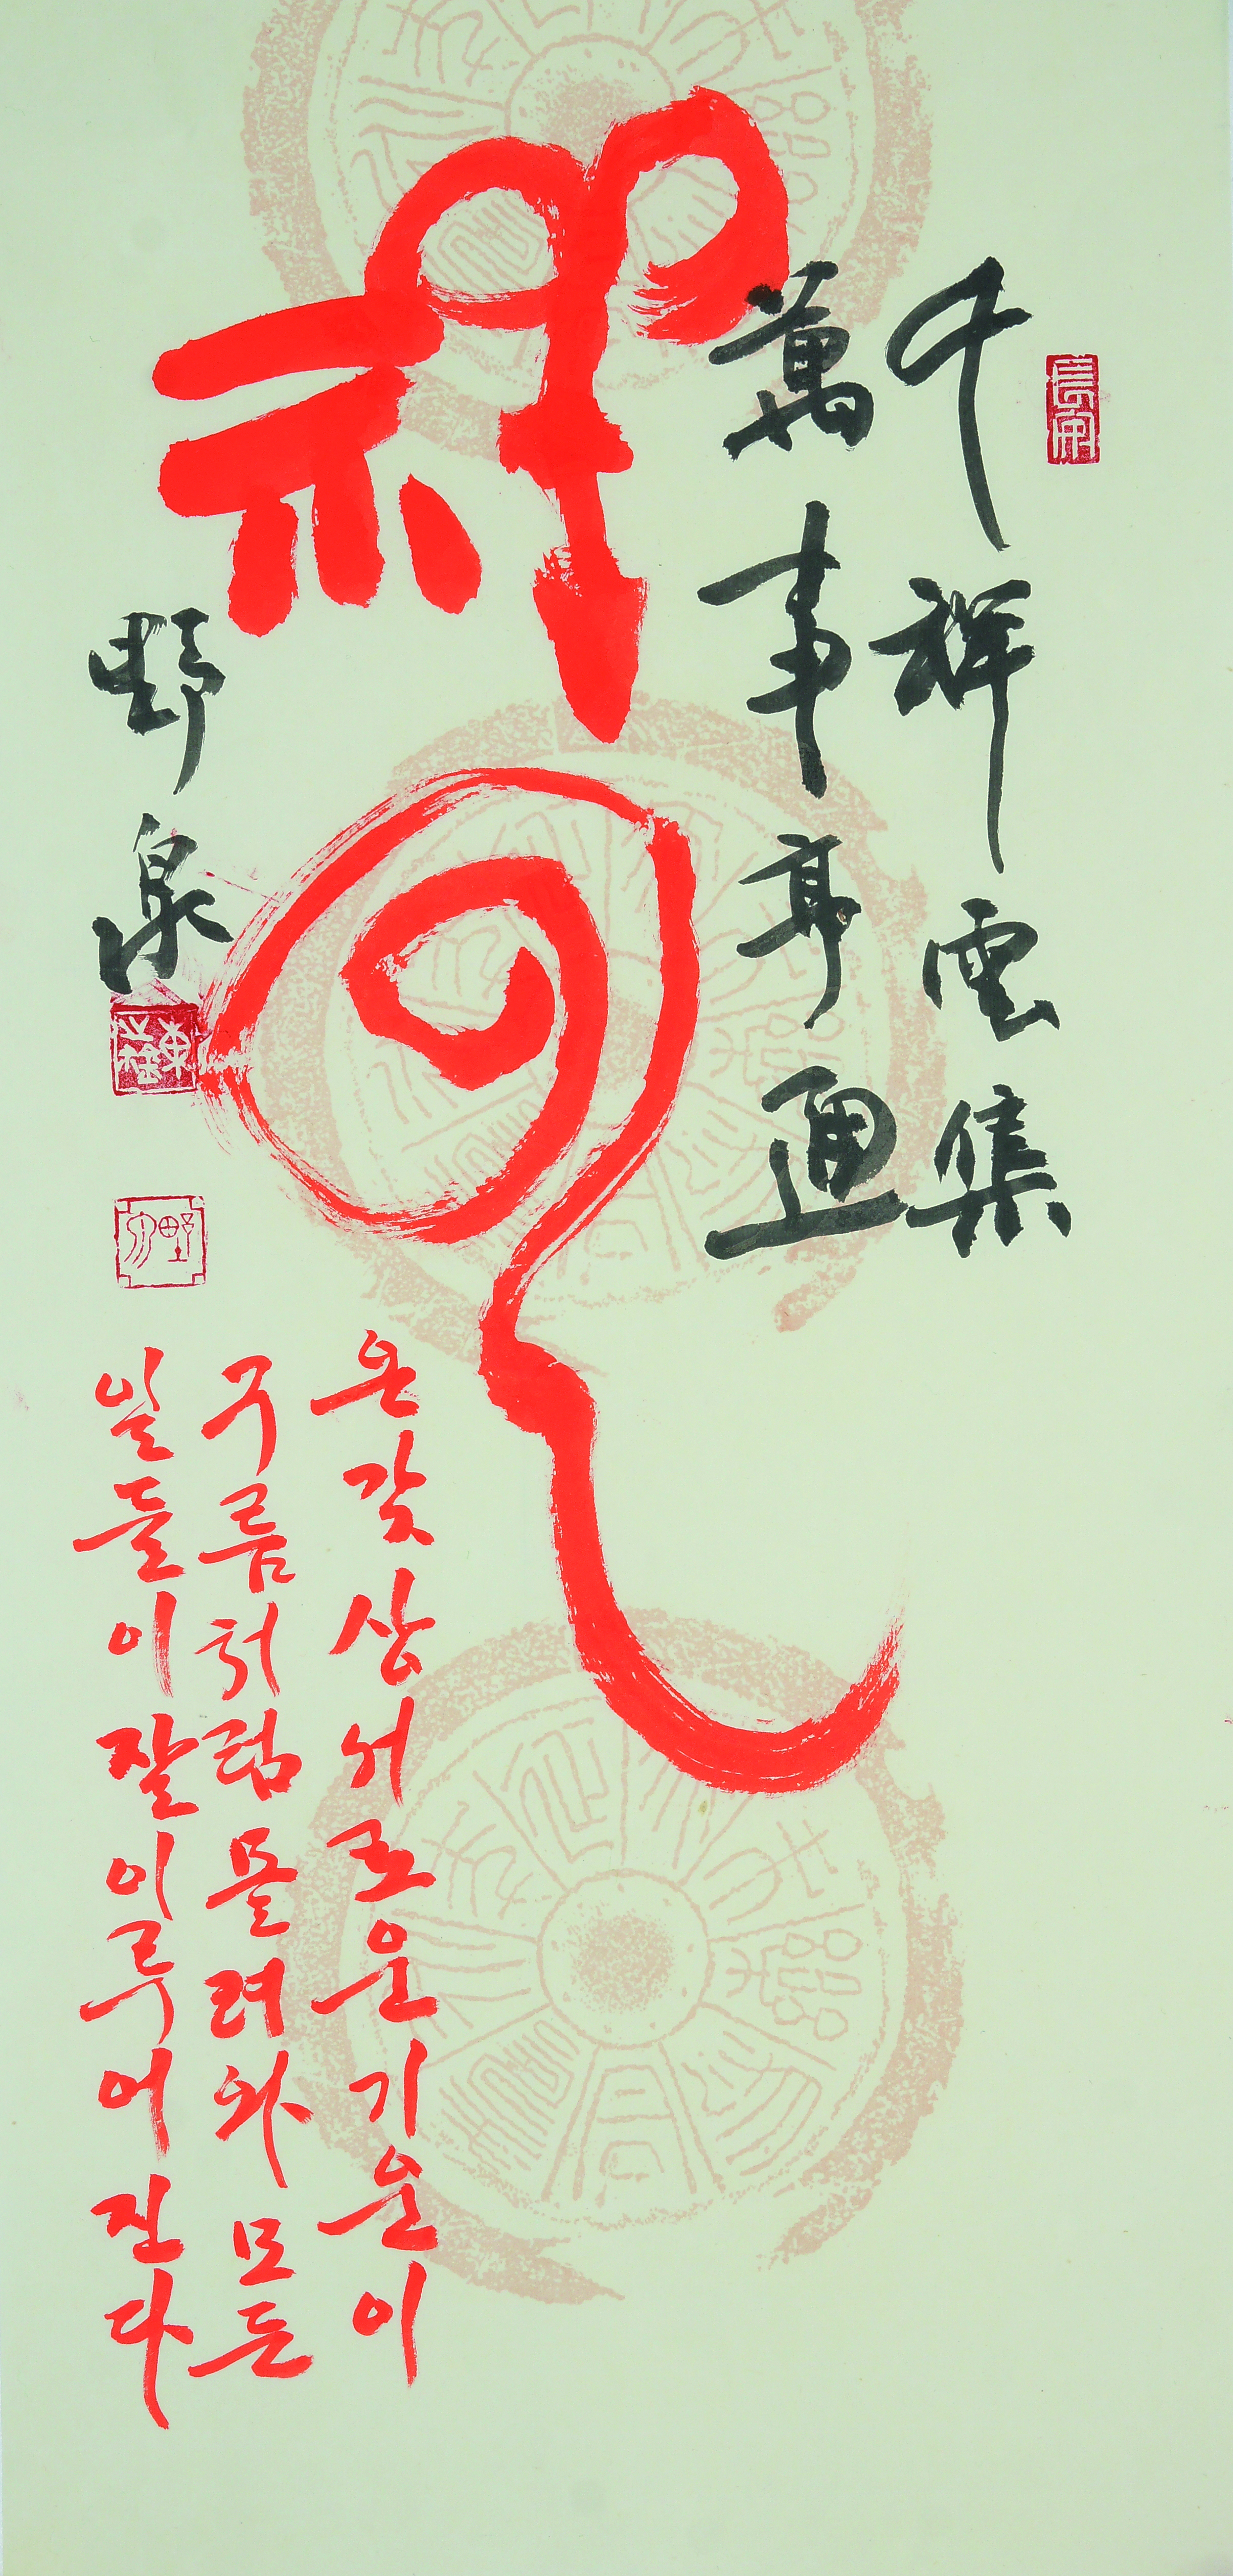 千祥雲集
萬事亨通
祥雲
野泉
온갖 상서로운 기운이
구름처럼 몰려와 모든
일들이 잘 이루어진다